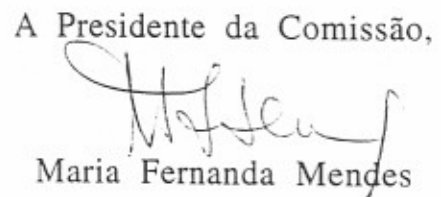 A Presidente da Comissão,
Maria Fernanda Mendes